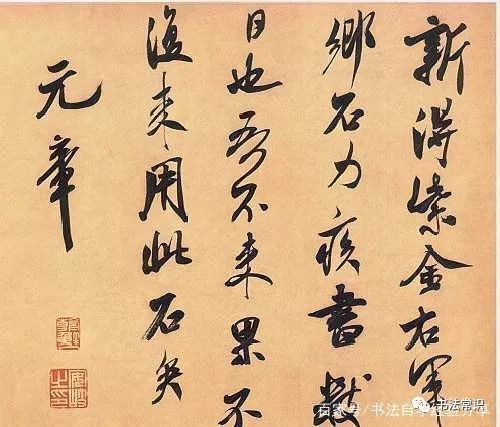 新得紫金右軍
鄉石力疾書數
日也吾不來果不
復来用此石矣
元章
百家号/书法自学
书法常识